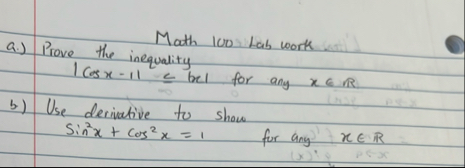 Math 100 Lab work
a.) Prove the inequality
|Cos x - 1| ≤ |x| for any x ∈ ℝ
b) Use derivative to show
Sin²x + Cos²x = 1 for any x ∈ ℝ